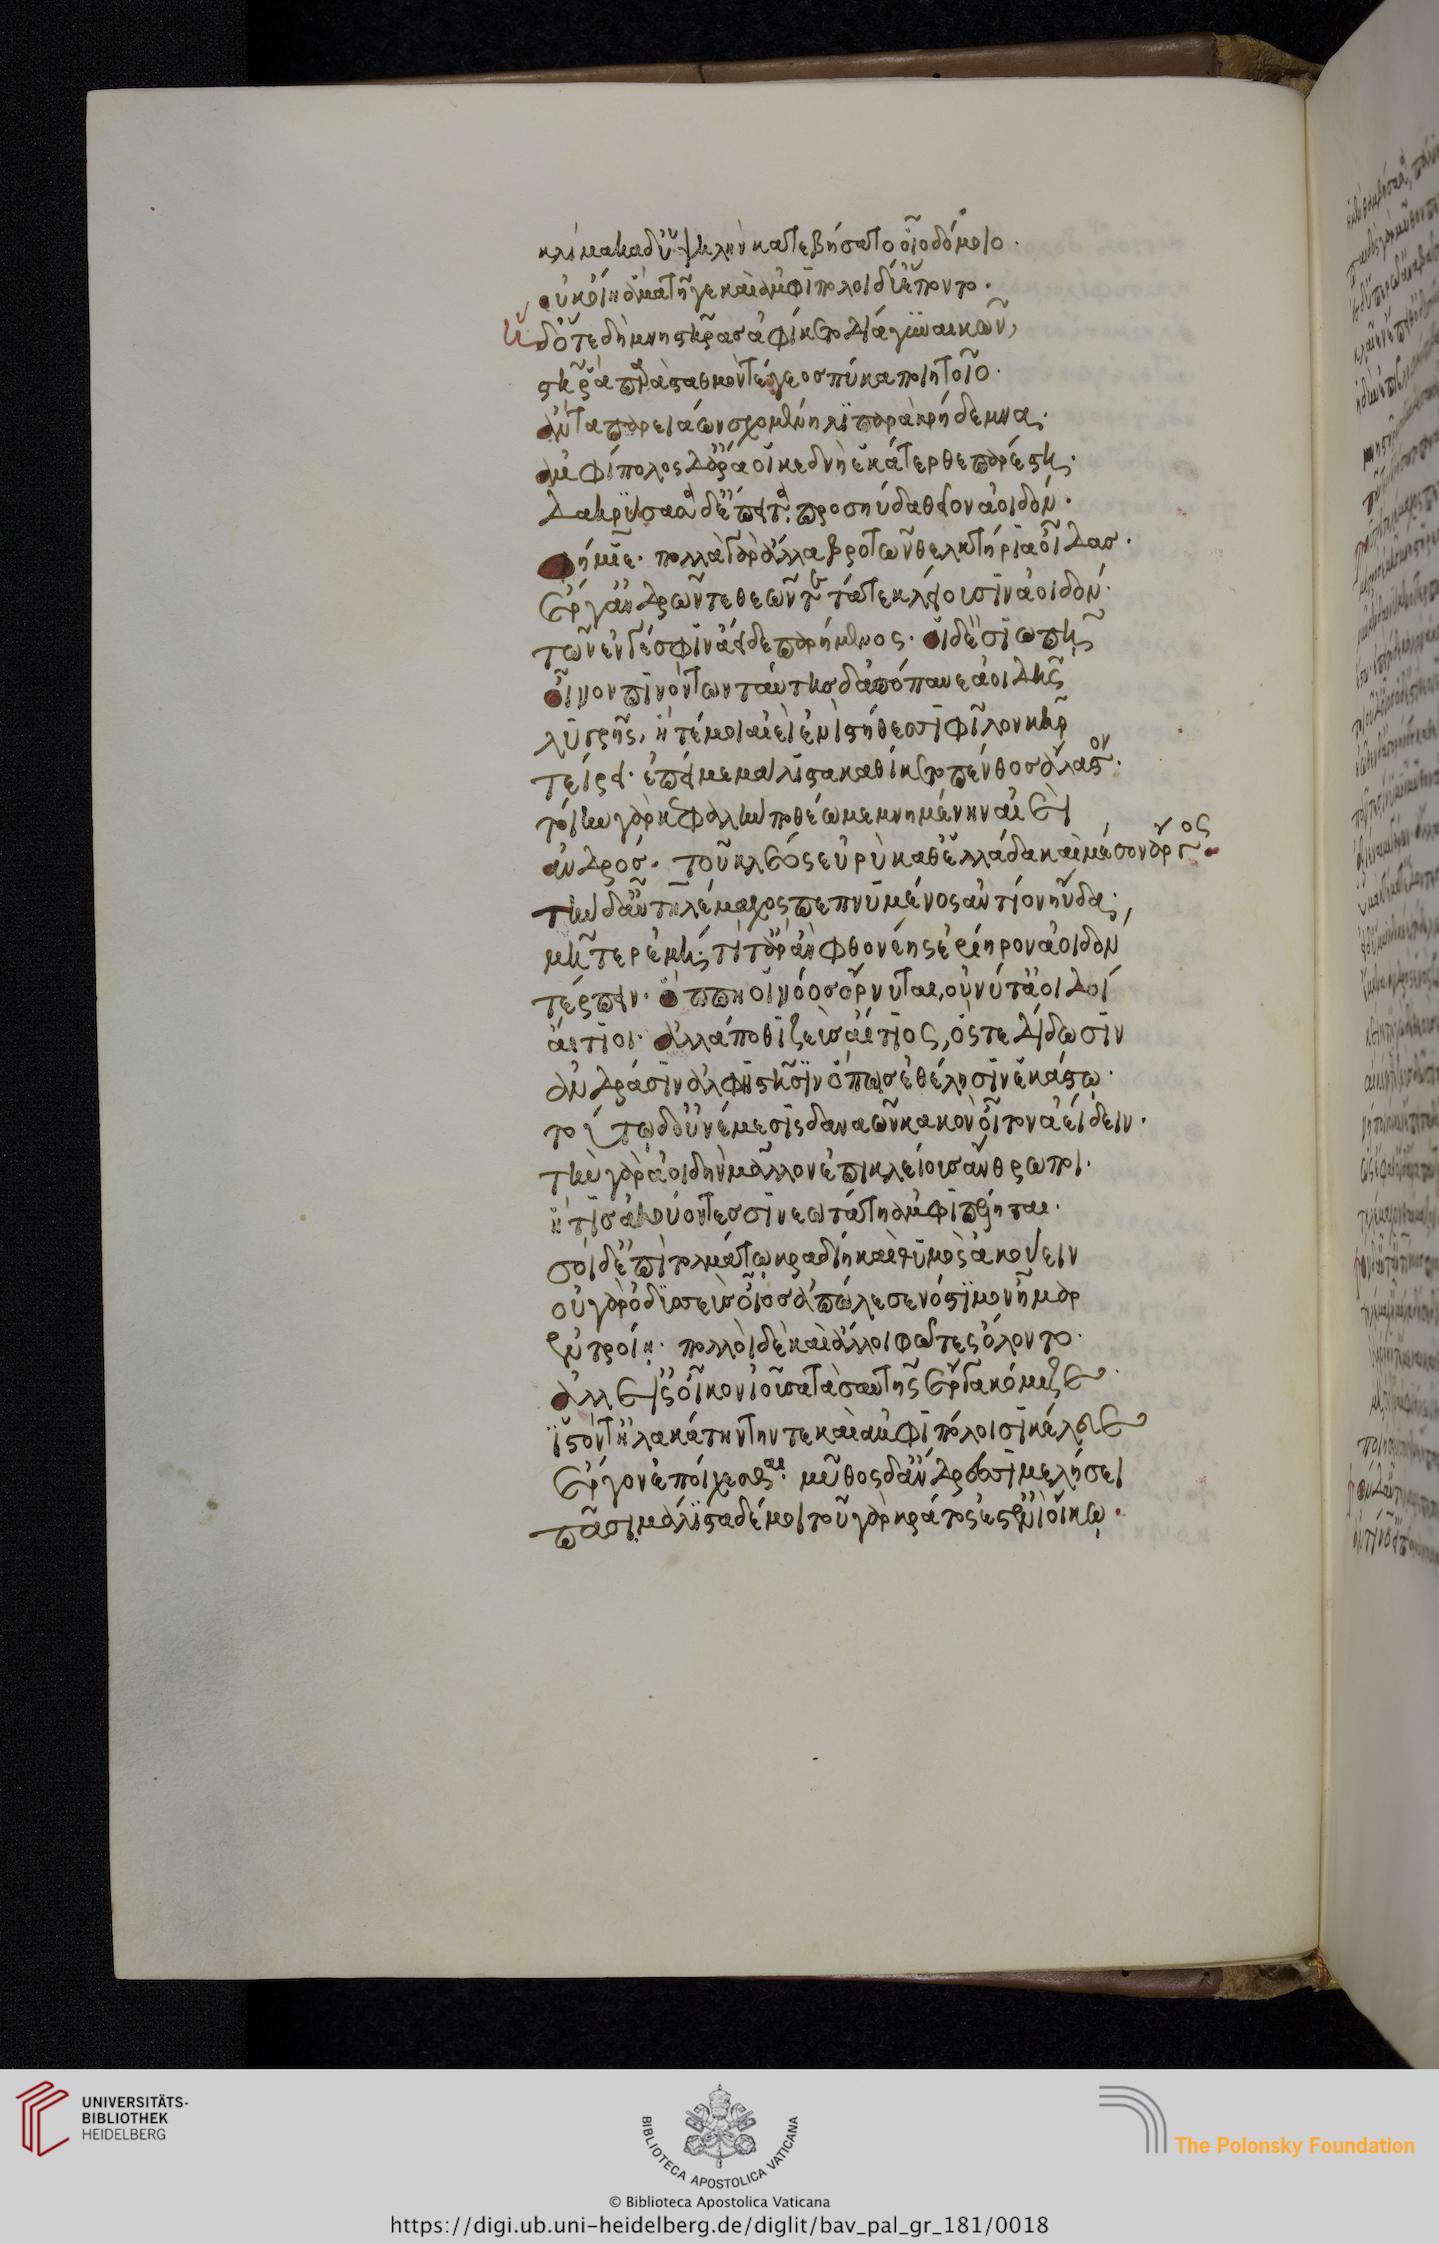 κλίμακα δ' ὑψηλὴν κατεβήσατο οἷο δόμοιο·
οὐκ οἴη· ἅμα τῆγε καὶ ἀμφίπολοι δύ' ἕποντο·
ἡ δ' ὅτε δὴ μνηστῆρας ἀφίκετο δῖα γυναικῶν,
στῆ ῥα παρὰ σταθμὸν τέγεος πύκα ποιητοῖο·
ἄντα παρειάων σχομένη λιπαρὰ κρήδεμνα·
ἀμφίπολος δ' ἄρα οἱ κεδνὴ ἑκάτερθε παρέστη·
δακρύσασα δ' ἔπειτα προσηύδα θεῖον ἀοιδόν·
φήμιε· πολλὰ γὰρ ἄλλα βροτῶν θελκτήρια οἶδας·
ἔργ' ἀνδρῶν τε θεῶν τε τά τε κλείουσιν ἀοιδοί·
τῶν ἕν γέ σφιν ἄειδε παρήμενος· οἱ δὲ σιωπῇ
οἶνον πινόντων· ταύτης δ' ἀπόπαυε ἀοιδῆς
λυγρῆς, ἥ τέ μοι αἰεὶ ἐνὶ στήθεσι φίλον κῆρ
τείρει· ἐπεί με μάλιστα καθίκετο πένθος ἄλαστον·
τοίην γὰρ κεφαλὴν ποθέω μεμνημένη αἰεὶ
ἀνδρός· τοῦ κλέος εὐρὺ καθ' ἑλλάδα καὶ μέσον ἄργος·
τὴν δ' αὖ τηλέμαχος πεπνυμένος ἀντίον ηὔδα·
μῆτερ ἐμή· τί τ' ἄρα φθονέεις ἐρίηρον ἀοιδὸν
τέρπειν· ὅππη οἱ νόος ὄρνυται, οὔ νύ τ' ἀοιδοὶ
αἴτιοι· ἀλλά ποθι ζεὺς αἴτιος, ὅς τε δίδωσιν
ἀνδράσιν ἀλφηστῇσιν ὅπως ἐθέλησιν ἑκάστῳ·
τούτῳ δ' οὐ νέμεσις δαναῶν κακὸν οἶτον ἀείδειν·
τὴν γὰρ ἀοιδὴν μᾶλλον ἐπικλείουσ' ἄνθρωποι·
ἥτις ἀκουόντεσσι νεωτάτη ἀμφιπέληται·
σοὶ δ' ἐπιτολμάτω κραδίη καὶ θυμὸς ἀκούειν
οὐ γὰρ ὀδυσσεὺς οἶος ἀπώλεσε νόστιμον ἦμαρ
ἐν τροίῃ· πολλοὶ δὲ καὶ ἄλλοι φῶτες ὄλοντο·
ἀλλ' εἰς οἶκον ἰοῦσα τὰ σαυτῆς ἔργα κόμιζε·
ἱστόν τ' ἠλακάτην τε καὶ ἀμφιπόλοισι κέλευε
ἔργον ἐποίχεσθαι· μῦθος δ' ἄνδρεσσι μελήσει
πᾶσι· μάλιστα δ' ἐμοὶ τοῦ γὰρ κράτος ἔστ' ἐνὶ οἴκῳ·
UNIVERSITÄTS-
BIBLIOTHEK
HEIDELBERG
BIBLIOTECA APOSTOLICA VATICANA
The Polonsky Foundation
© Biblioteca Apostolica Vaticana
https://digi.ub.uni-heidelberg.de/diglit/bav_pal_gr_181/0018